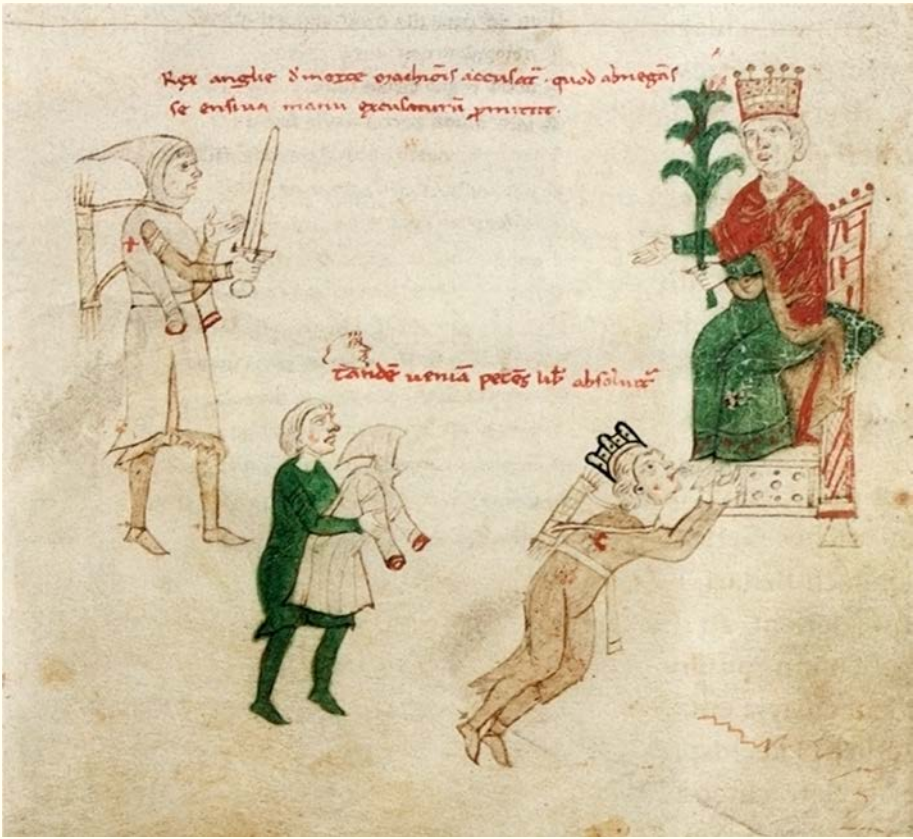 Rex anglie d' morte machiōis accusat̄ · quod abnegās
se ensiua manu exculaturū ꝓmittit.
tandē ueniā petēs lib̄ absoluit̄